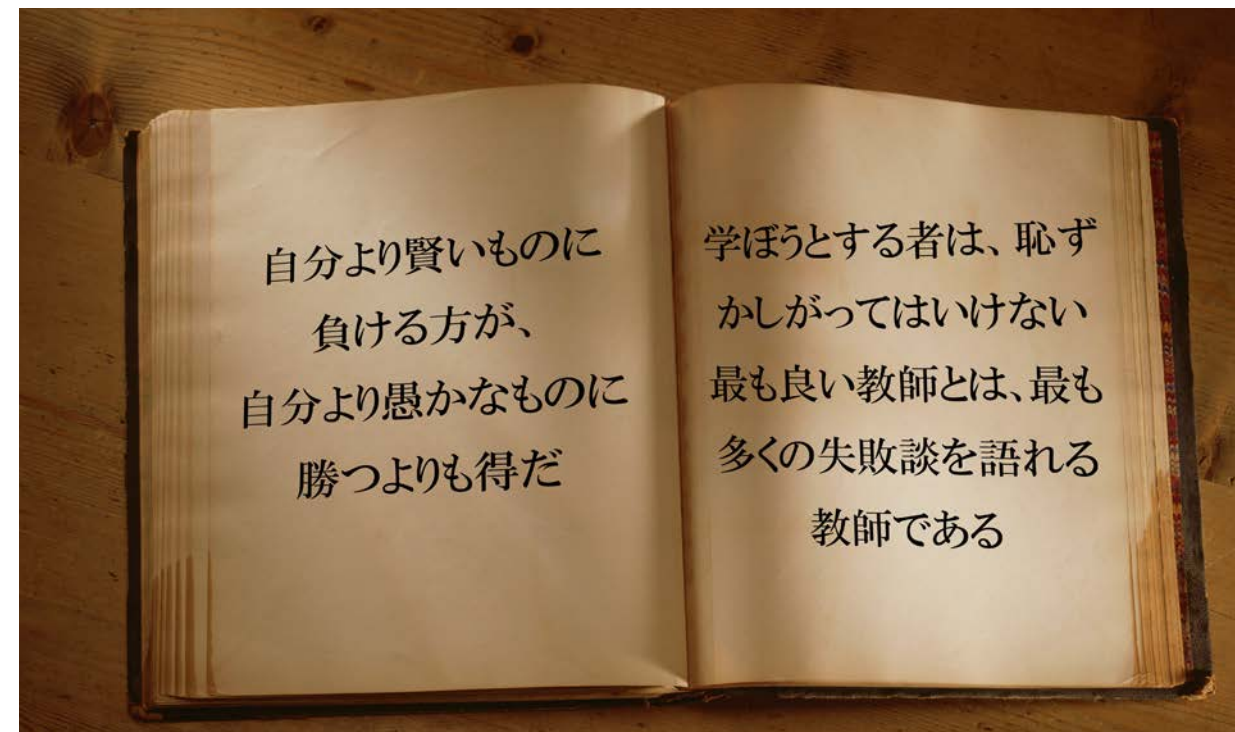 自分より賢いものに
負ける方が、
自分より愚かなものに
勝つよりも得だ
学ぼうとする者は、恥ず
かしがってはいけない
最も良い教師とは、最も
多くの失敗談を語れる
教師である